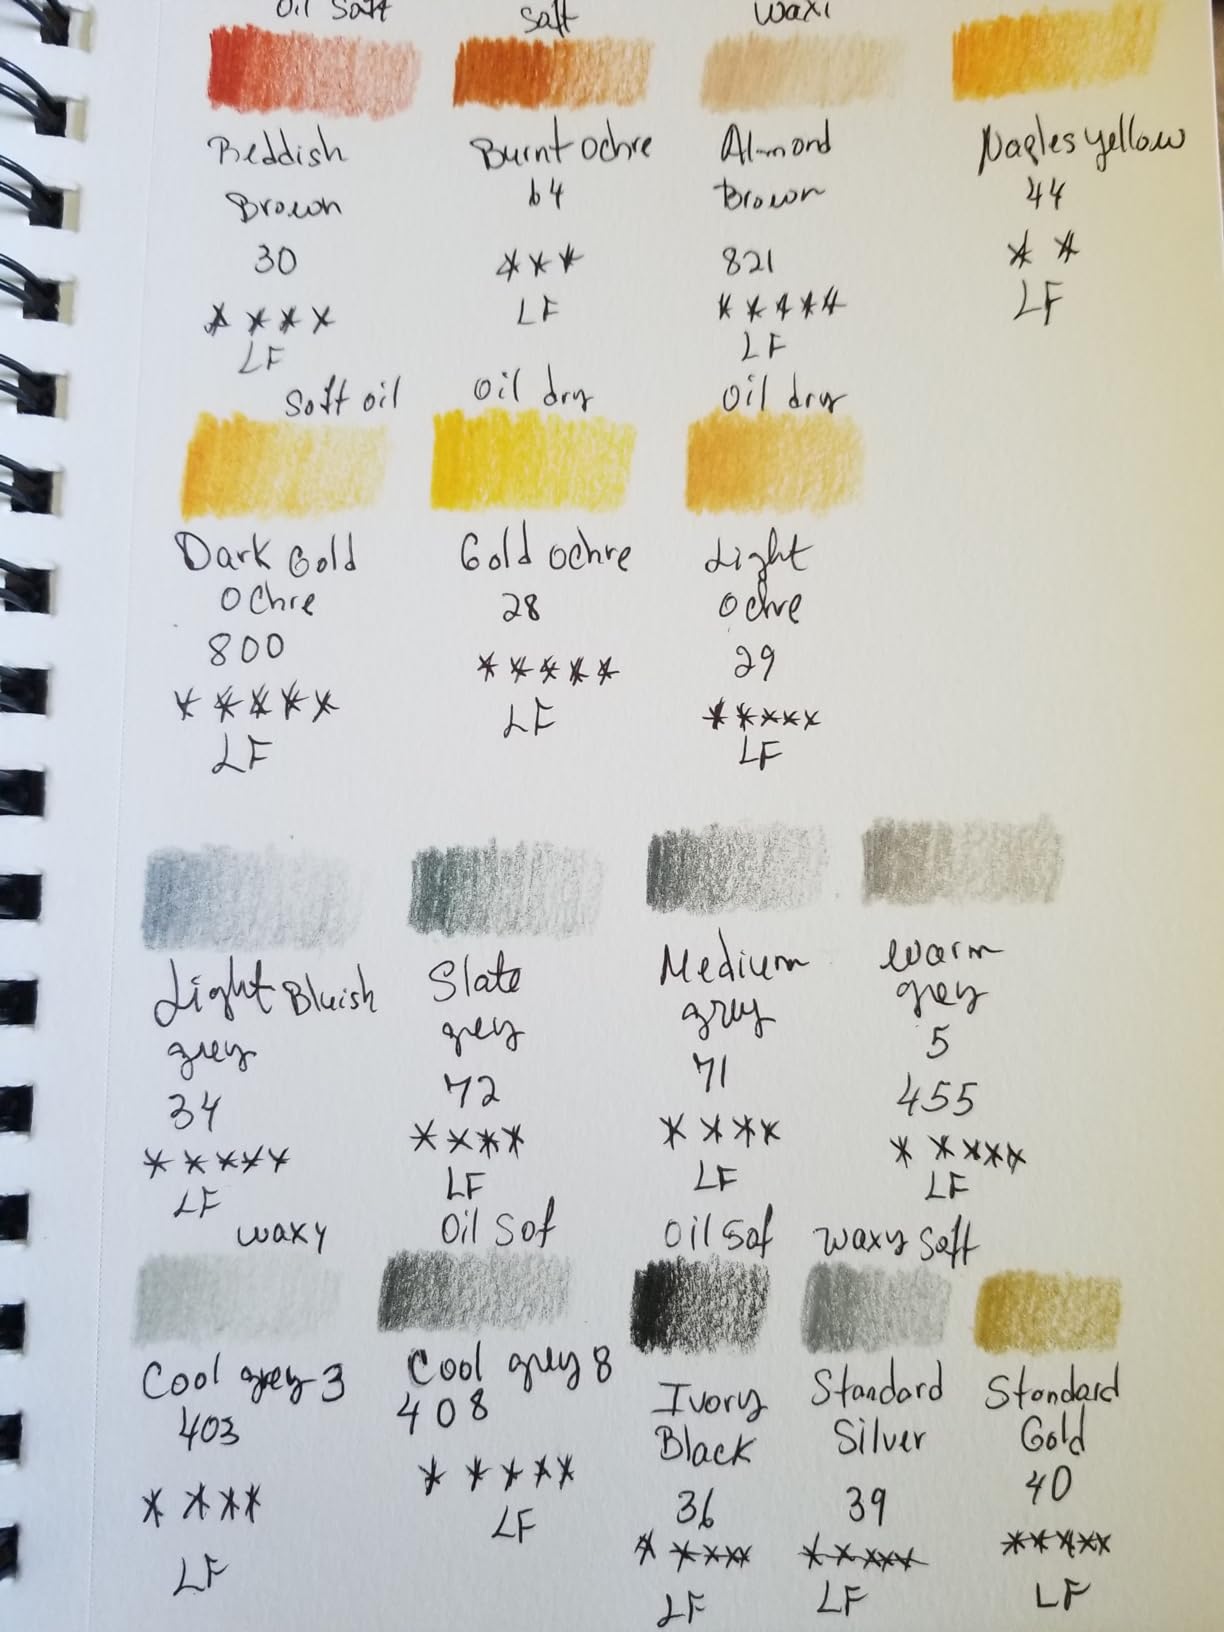 Oil Saft
Saft
Waxi
Reddish
Brown
30
****
LF
Burnt Ochre
64
***
LF
Almond
Brown
821
*****
LF
Naples yellow
44
**
LF
Soft oil
Oil dry
Oil dry
Dark Gold
Ochre
800
*****
LF
Gold Ochre
28
*****
LF
Light
Ochre
29
*****
LF
Light Bluish
grey
34
*****
LF
Slate
grey
72
****
LF
Medium
grey
71
****
LF
Warm
grey
5
455
*****
LF
Waxy
Oil Sof
Oil Saf
Waxy Saft
Cool grey 3
403
****
LF
Cool grey 8
408
*****
LF
Ivory
Black
36
*****
LF
Standard
Silver
39
*****
LF
Standard
Gold
40
*****
LF